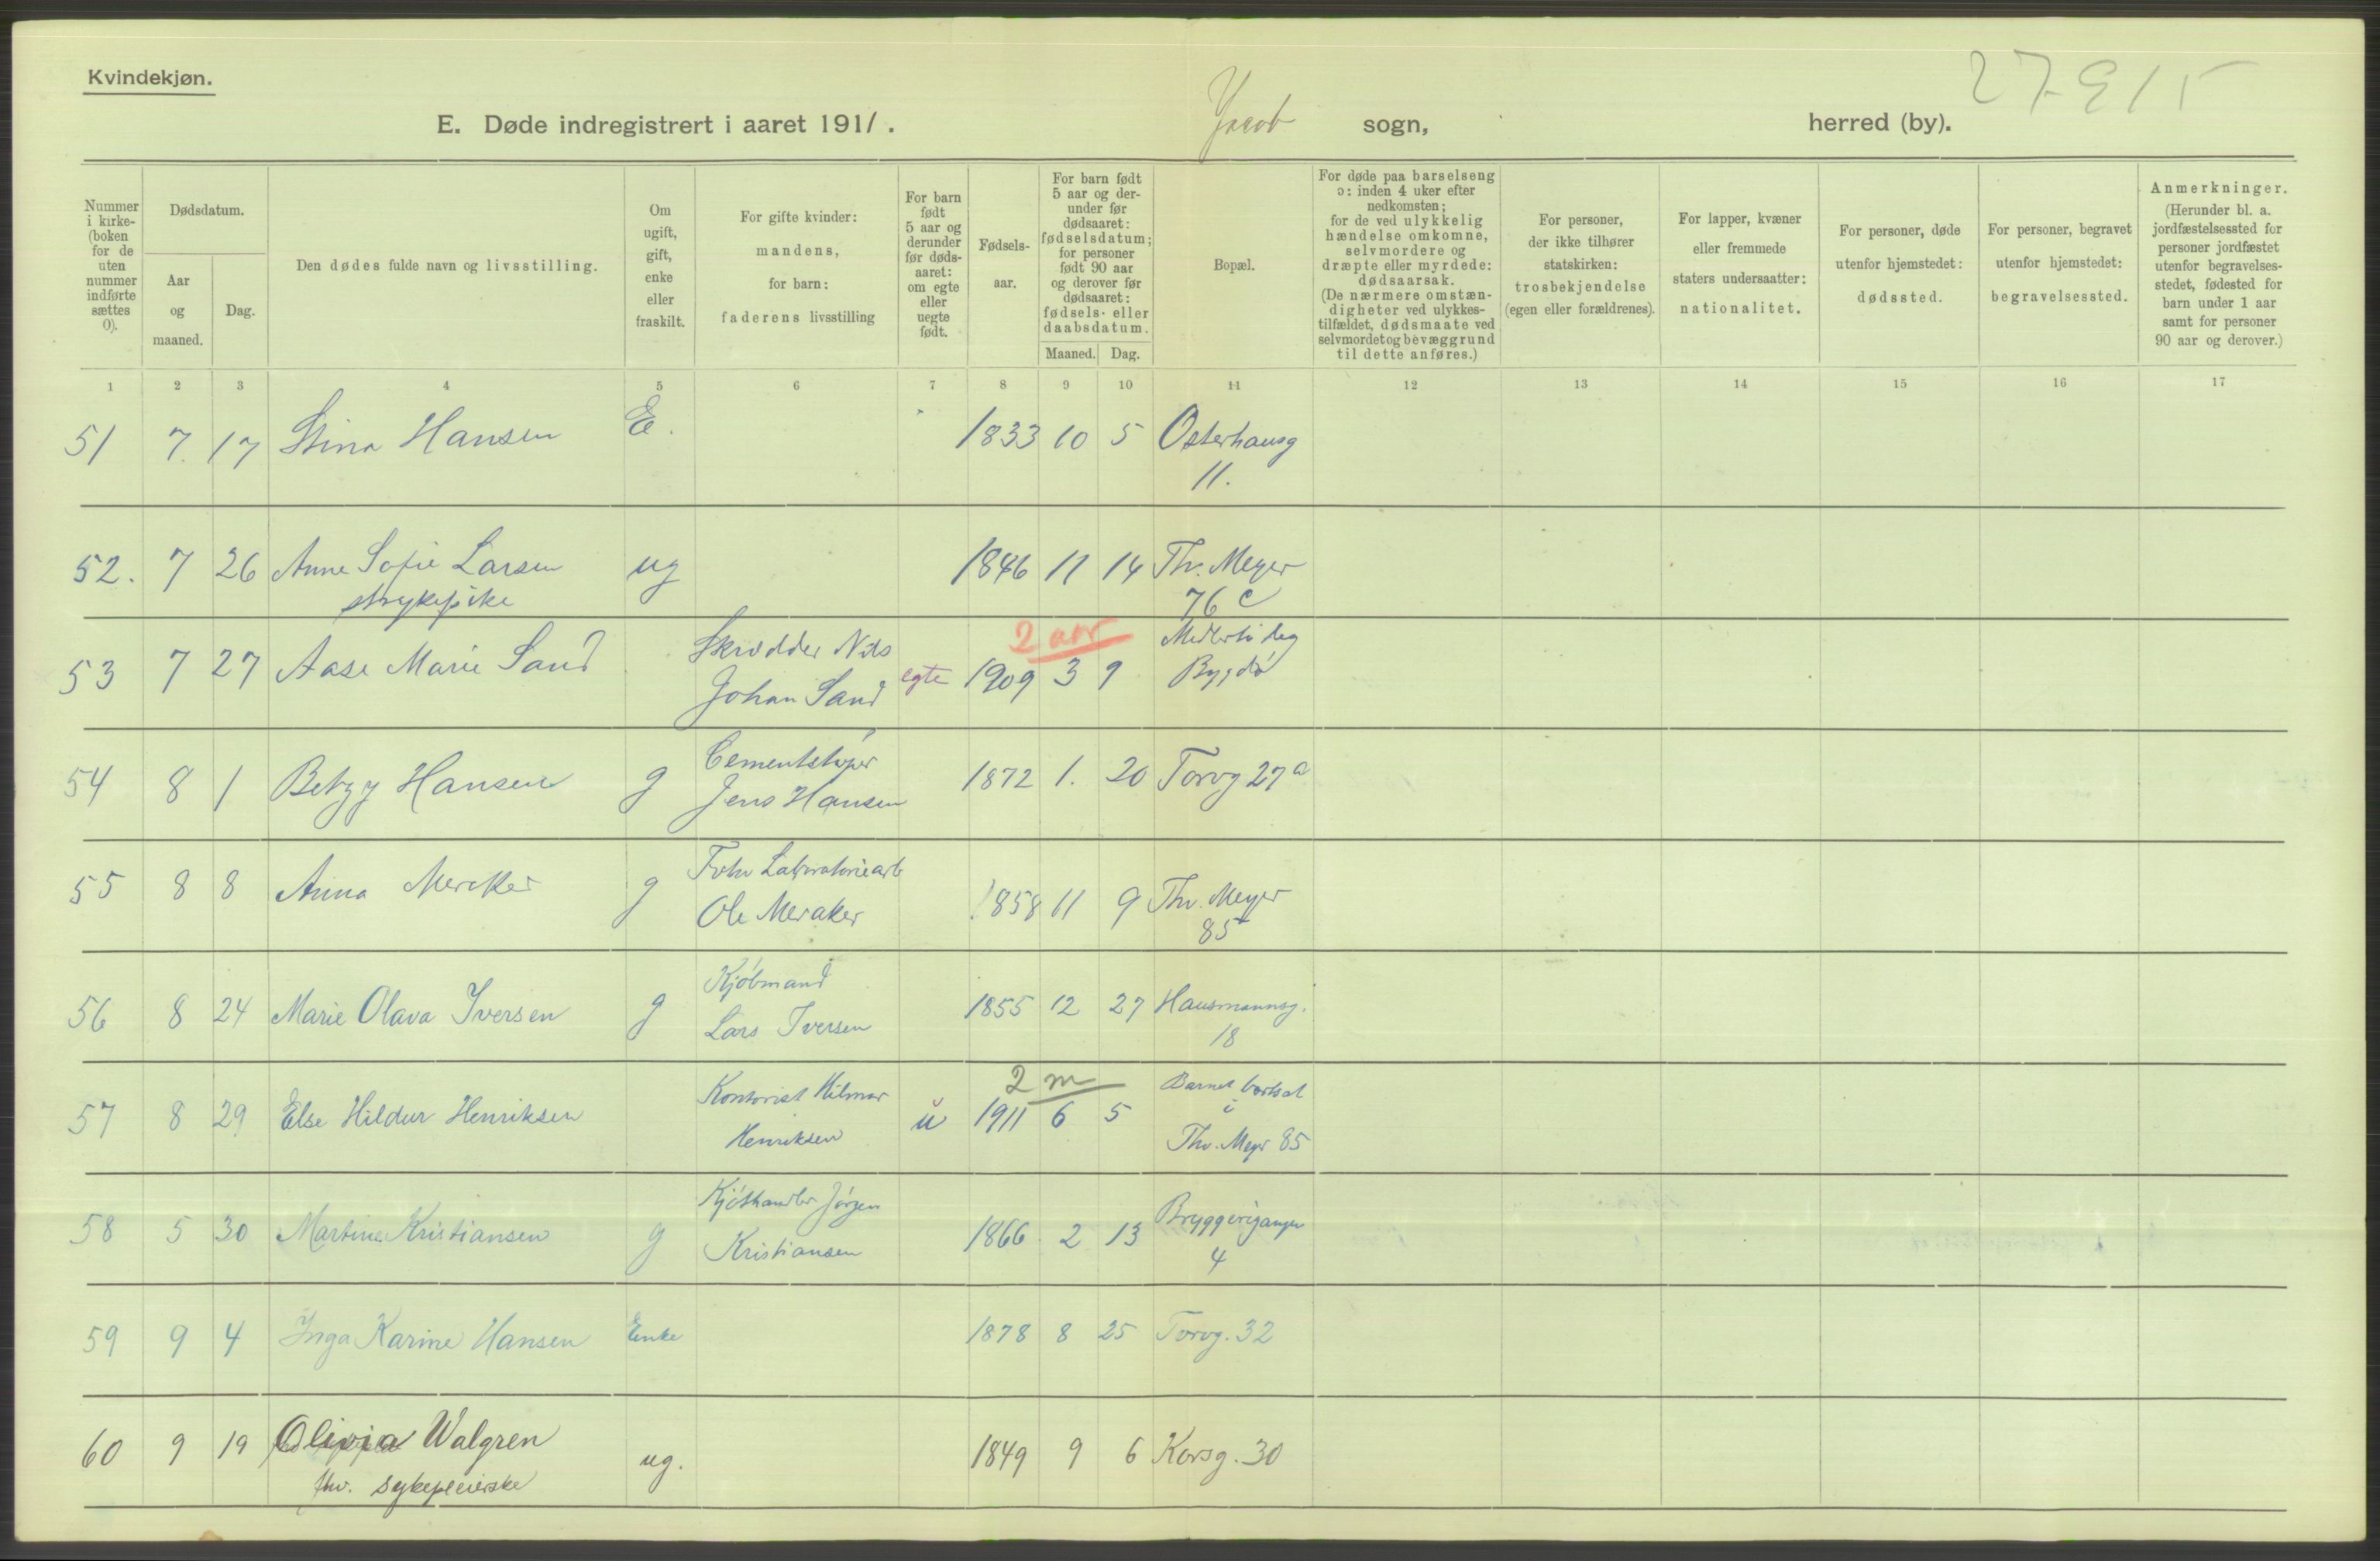 Kvindekjøn.
27-9/5
E. Døde indregistrert i aaret 1911. Jacob sogn, herred (by).
Nummer i kirke- (boken for de uten nummer indførte sættes 0).
Dødsdatum.
Aar og maaned.
Dag.
Den dødes fulde navn og livsstilling.
Om ugift, gift, enke eller fraskilt.
For gifte kvinder: mandens, for barn: faderens livsstilling
For barn født 5 aar og derunder før døds- aaret: om egte eller uegte født.
Fødsels- aar.
For barn født 5 aar og der- under før dødsaaret: fødselsdatum; for personer født 90 aar og derover før dødsaaret: fødsels- eller daabsdatum.
Maaned. Dag.
Bopæl.
For døde paa barselseng ɔ: inden 4 uker efter nedkomsten; for de ved ulykkelig hændelse omkomne, selvmordere og dræpte eller myrdede: dødsaarsak. (De nærmere omstæn- digheter ved ulykkes- tilfældet, dødsmaate ved selvmordet og bevæggrund til dette anføres.)
For personer, der ikke tilhører statskirken: trosbekjendelse (egen eller forældrenes).
For lapper, kvæner eller fremmede staters undersaatter: nationalitet.
For personer, døde utenfor hjemstedet: dødssted.
For personer, begravet utenfor hjemstedet: begravelsessted.
Anmerkninger. (Herunder bl. a. jordfæstelsessted for personer jordfæstet utenfor begravelses- stedet, fødested for barn under 1 aar samt for personer 90 aar og derover.)
1 2 3 4 5 6 7 8 9 10 11 12 13 14 15 16 17
51 7. 17 Stina Hansen E. 1833 10 5 Osterhausg
11.
52. 7 26 Anne Sofie Larsen ug 1846 11 14 Th. Meyer
strykepike 76 c
2 aar
53 7 27 Aase Marie Sand Skrædder Nils
Johan Sand egte 1909 3 9
Bygdø
54 8 1 Betzy Hansen g Cementstøper
Jens Hansen 1872 1. 20 Torvg 27 a
55 8 8 Anna Meraker g Fotv Laboratoriearb
Ole Meraker 1858 11 9 Thv. Meyer
85
56 8 24 Marie Olava Iversen g Kjøbmand
Lars Iversen 1855 12 27 Hausmannsg.
18
2 m
57 8 29 Else Hildur Henriksen Kontorist Hilmar
Henriksen u 1911 6 5 Barnet bortsat
i
Thv. Meyer 85
58 5 30 Martine Kristiansen g Kjøthandler Jørgen
Kristiansen 1866 2 13 Bryggerigangen
4
59 9 4 Inga Karine Hansen Enke 1878 8 25 Torvg. 32
60 9 19 Olivia Walgren ug. 1849 9 6 Korsg. 30
fhv. sykepleierske